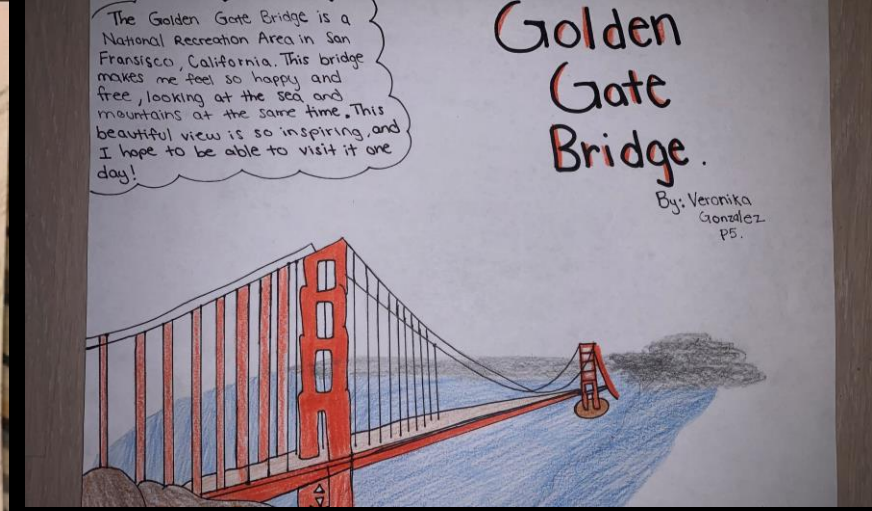 The Golden Gate Bridge is a
National Recreation Area in San
Fransisco, California. This bridge
makes me feel so happy and
free, looking at the sea and
mountains at the same time. This
beautiful view is so inspiring, and
I hope to be able to visit it one
day!
Golden
Gate
Bridge.
By: Veronika
Gonzalez
P5.